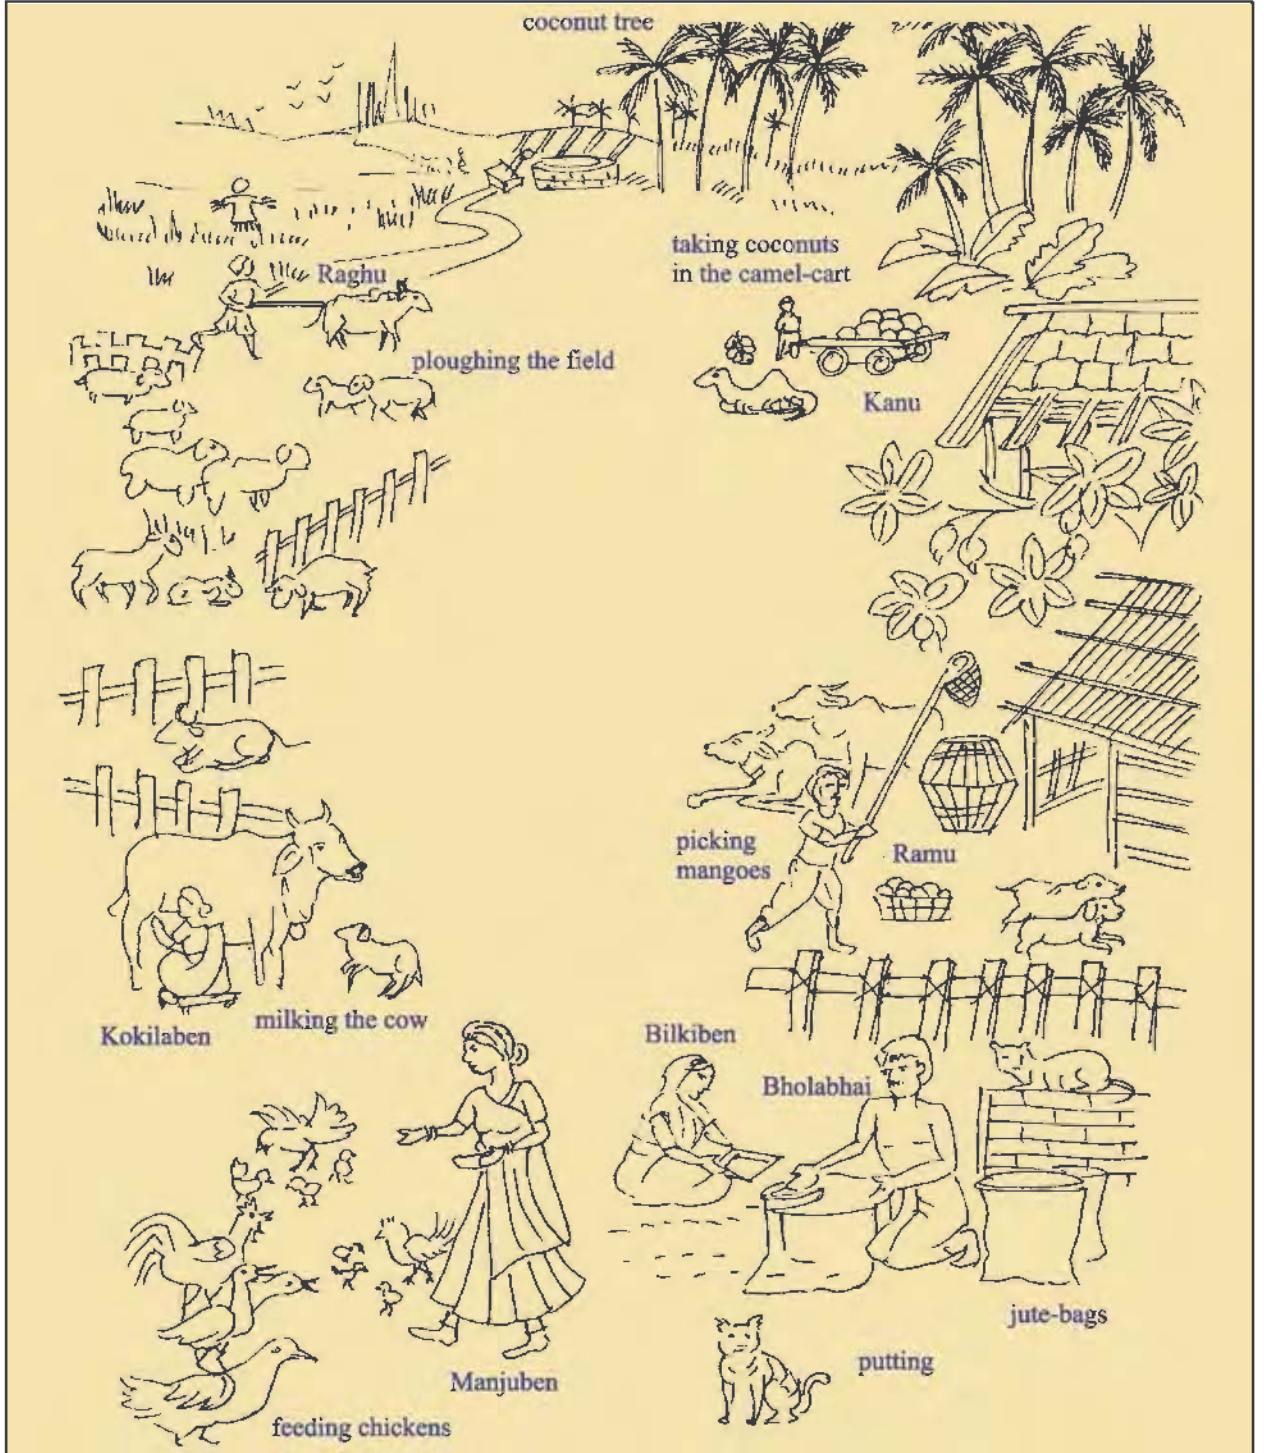 coconut tree
taking coconuts
in the camel-cart
Raghu
ploughing the field
Kanu
picking
mangoes
Ramu
Kokilaben
milking the cow
Bilkiben
Bholabhai
jute-bags
putting
Manjuben
feeding chickens